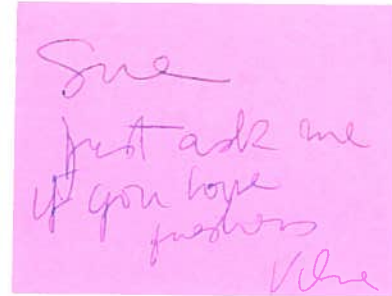 Sue
Just ask me
if you have
questions